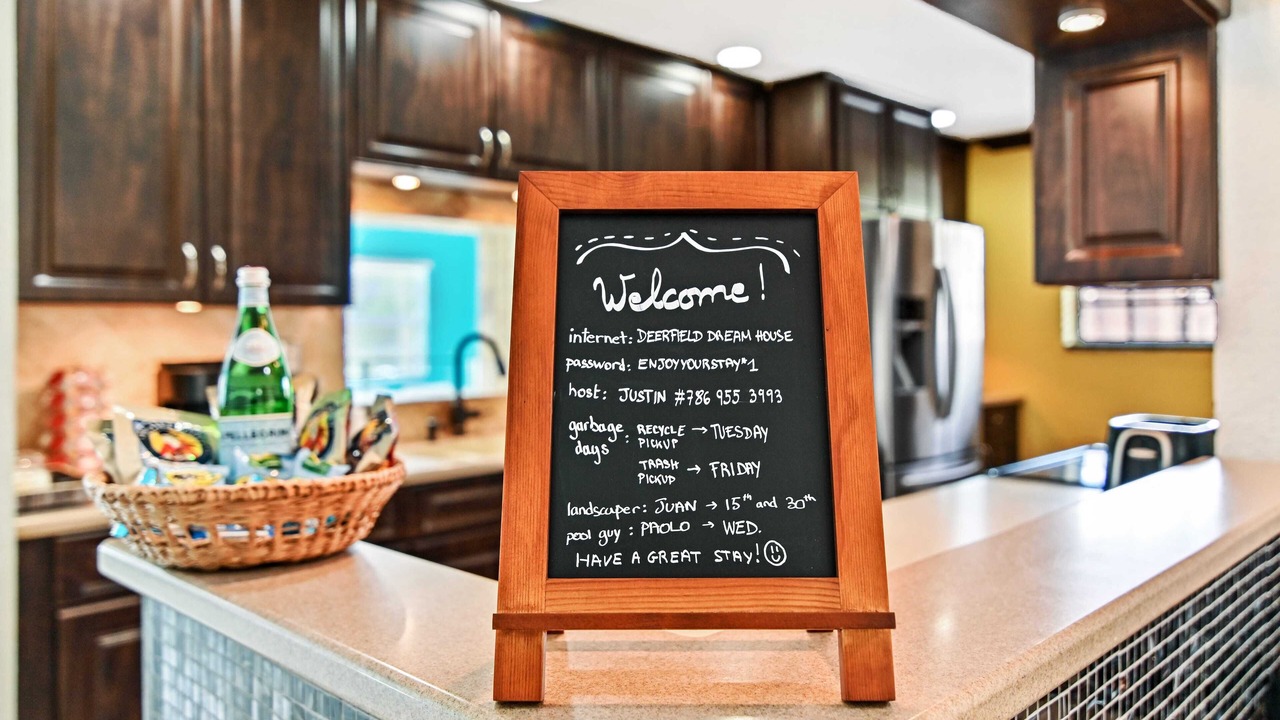 Welcome!
internet: DEERFIELD DREAM HOUSE
password: ENJOYYOURSTAY*1
host: JUSTIN #786 955 3993
garbage days: RECYCLE PICKUP → TUESDAY
TRASH PICKUP → FRIDAY
landscaper: JUAN → 15th and 30th
pool guy: PAOLO → WED.
HAVE A GREAT STAY!
PELLEGRINO